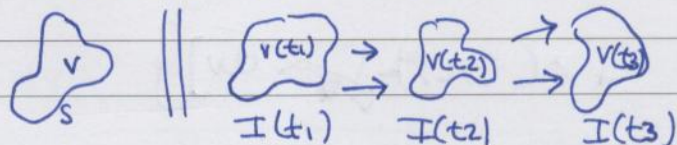 V
S
V(t1) V(t2) V(t3)
I(t1) I(t2) I(t3)